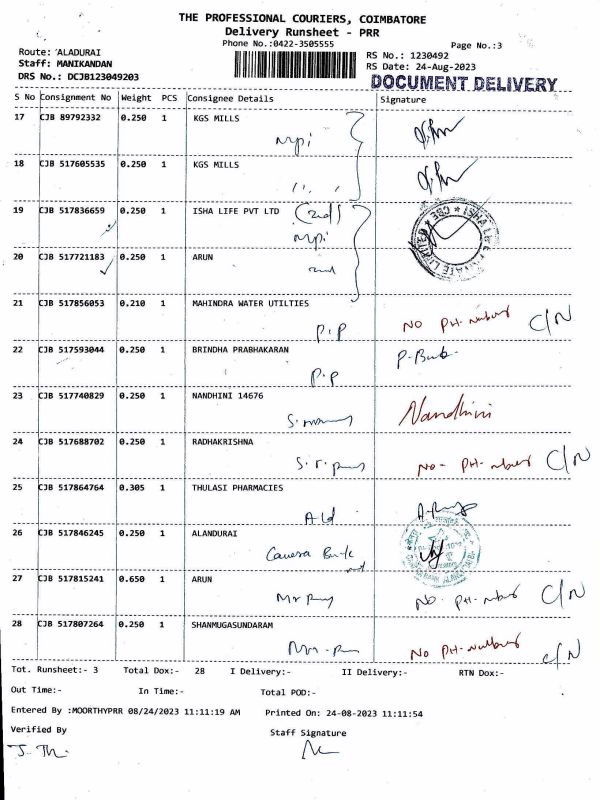 THE PROFESSIONAL COURIERS, COIMBATORE
Delivery Runsheet - PRR
Phone No.:0422-3505555
Page No.:3
Route: ALADURAI
Staff: MANIKANDAN
DRS No.: DCJB123049203
RS No.: 1230492
RS Date: 24-Aug-2023
DOCUMENT DELIVERY
S No Consignment No Weight PCS Consignee Details Signature
17 CJB 89792332 0.250 1 KGS MILLS
mpi
18 CJB 517605535 0.250 1 KGS MILLS
19 CJB 517836659 0.250 1 ISHA LIFE PVT LTD
mpi
20 CJB 517721183 0.250 1 ARUN
21 CJB 517856053 0.210 1 MAHINDRA WATER UTILTIES
P.P NO PH-number C/N
22 CJB 517593044 0.250 1 BRINDHA PRABHAKARAN
P.P
23 CJB 517740829 0.250 1 NANDHINI 14676
Nandhini
24 CJB 517688702 0.250 1 RADHAKRISHNA
No- PH- number C/N
25 CJB 517864764 0.305 1 THULASI PHARMACIES
26 CJB 517846245 0.250 1 ALANDURAI
Canera Bank
27 CJB 517815241 0.650 1 ARUN
No- PH-number C/N
28 CJB 517807264 0.250 1 SHANMUGASUNDARAM
No PH-number C/N
Tot. Runsheet:- 3 Total Dox:- 28 I Delivery:- II Delivery:- RTN Dox:-
Out Time:- In Time:- Total POD:-
Entered By :MOORTHYPRR 08/24/2023 11:11:19 AM Printed On: 24-08-2023 11:11:54
Verified By Staff Signature